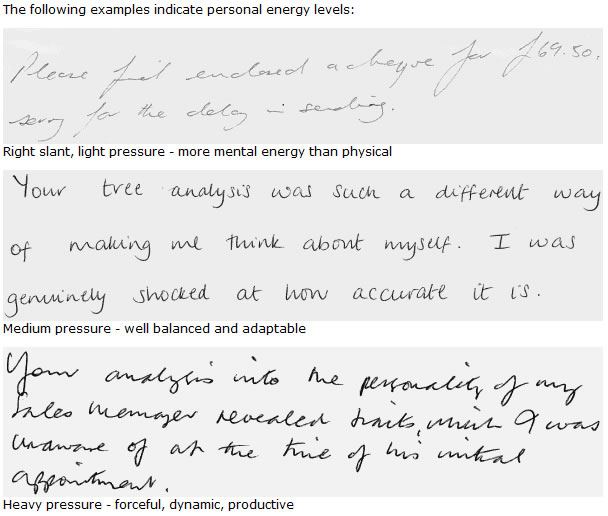 The following examples indicate personal energy levels:
Please find enclosed a cheque for £69.50.
sorry for the delay in sending.
Right slant, light pressure - more mental energy than physical
Your tree analysis was such a different way
of making me think about myself. I was
genuinely shocked at how accurate it is.
Medium pressure - well balanced and adaptable
Your analysis into the personality of my
Sales Manager revealed traits, which I was
unaware of at the time of his initial
appointment.
Heavy pressure - forceful, dynamic, productive